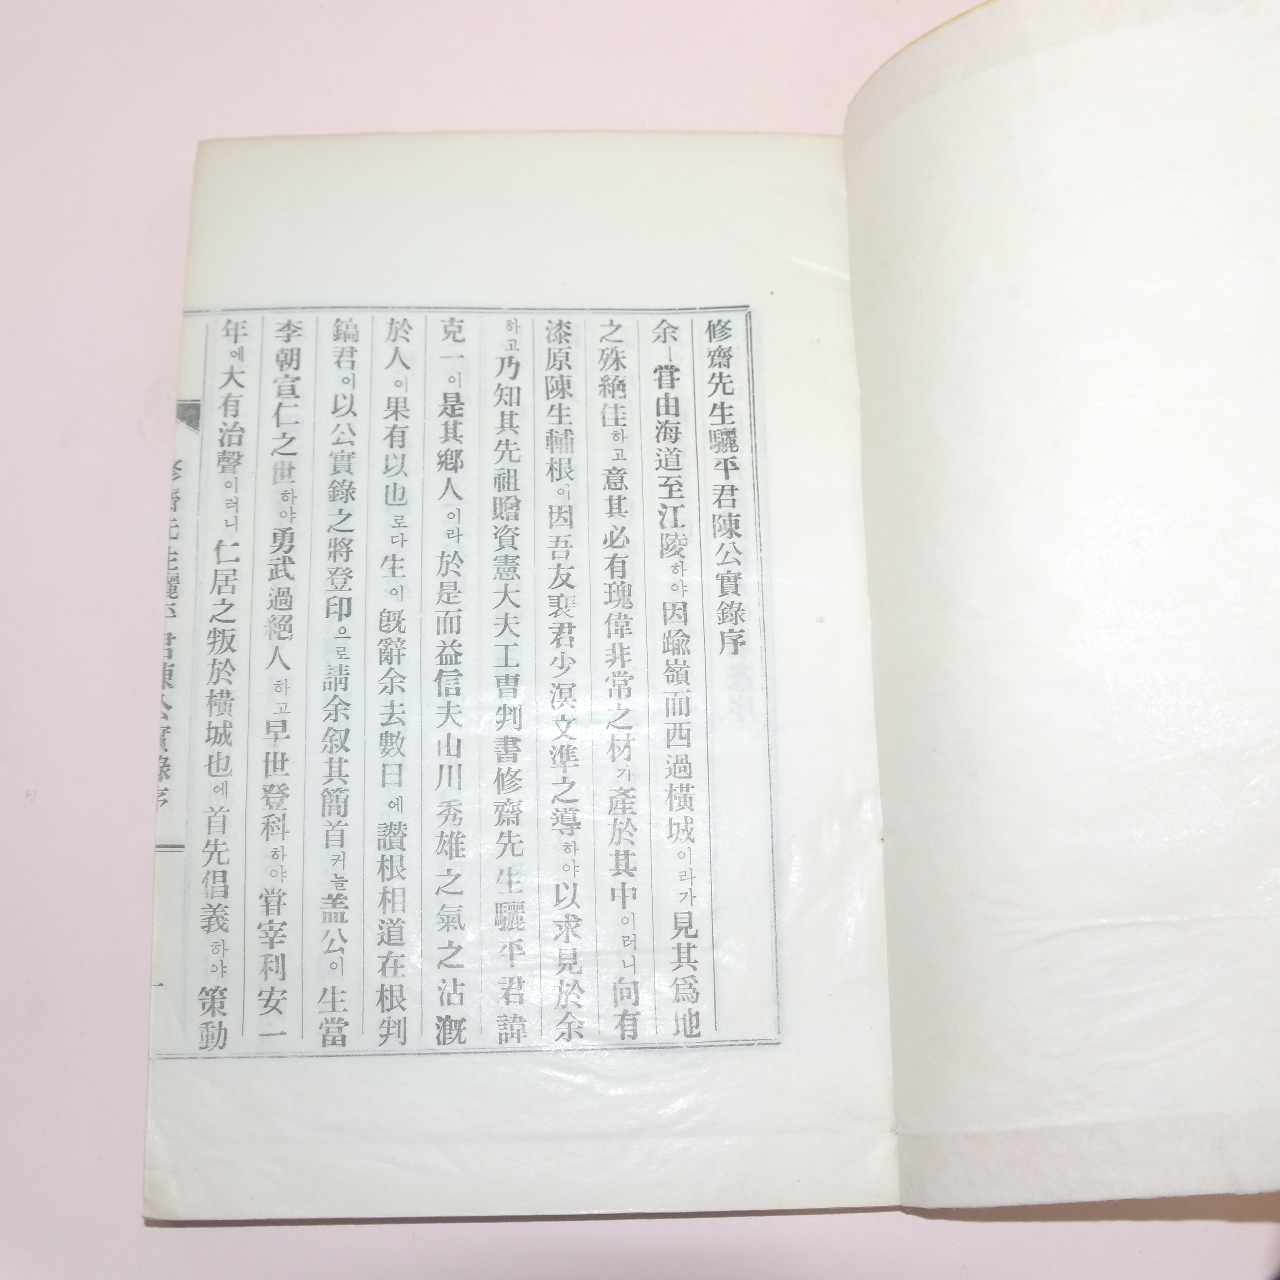 修齋先生驪平君陳公實錄序
余ㅣ甞由海道至江陵하야因踰嶺而西過橫城이라가見其爲地
之殊絶佳하고意其必有瑰偉非常之材가產於其中이러니向有
漆原陳生輔根이因吾友裵君少溟文準之導하야以求見於余
하고乃知其先祖贈資憲大夫工曹判書修齋先生驪平君諱
克一이是其鄕人이라於是而益信夫山川秀雄之氣之沾漑
於人이果有以也로다生이旣辭余去數日에讚根相道在根判
鎬君이以公實錄之將登印으로請余叙其簡首커늘盖公이生當
李朝宣仁之世하야勇武過絶人하고早世登科하야甞宰利安一
年에大有治聲이러니仁居之叛於橫城也에首先倡義하야策動
修齋先生驪平君陳公實錄序
一